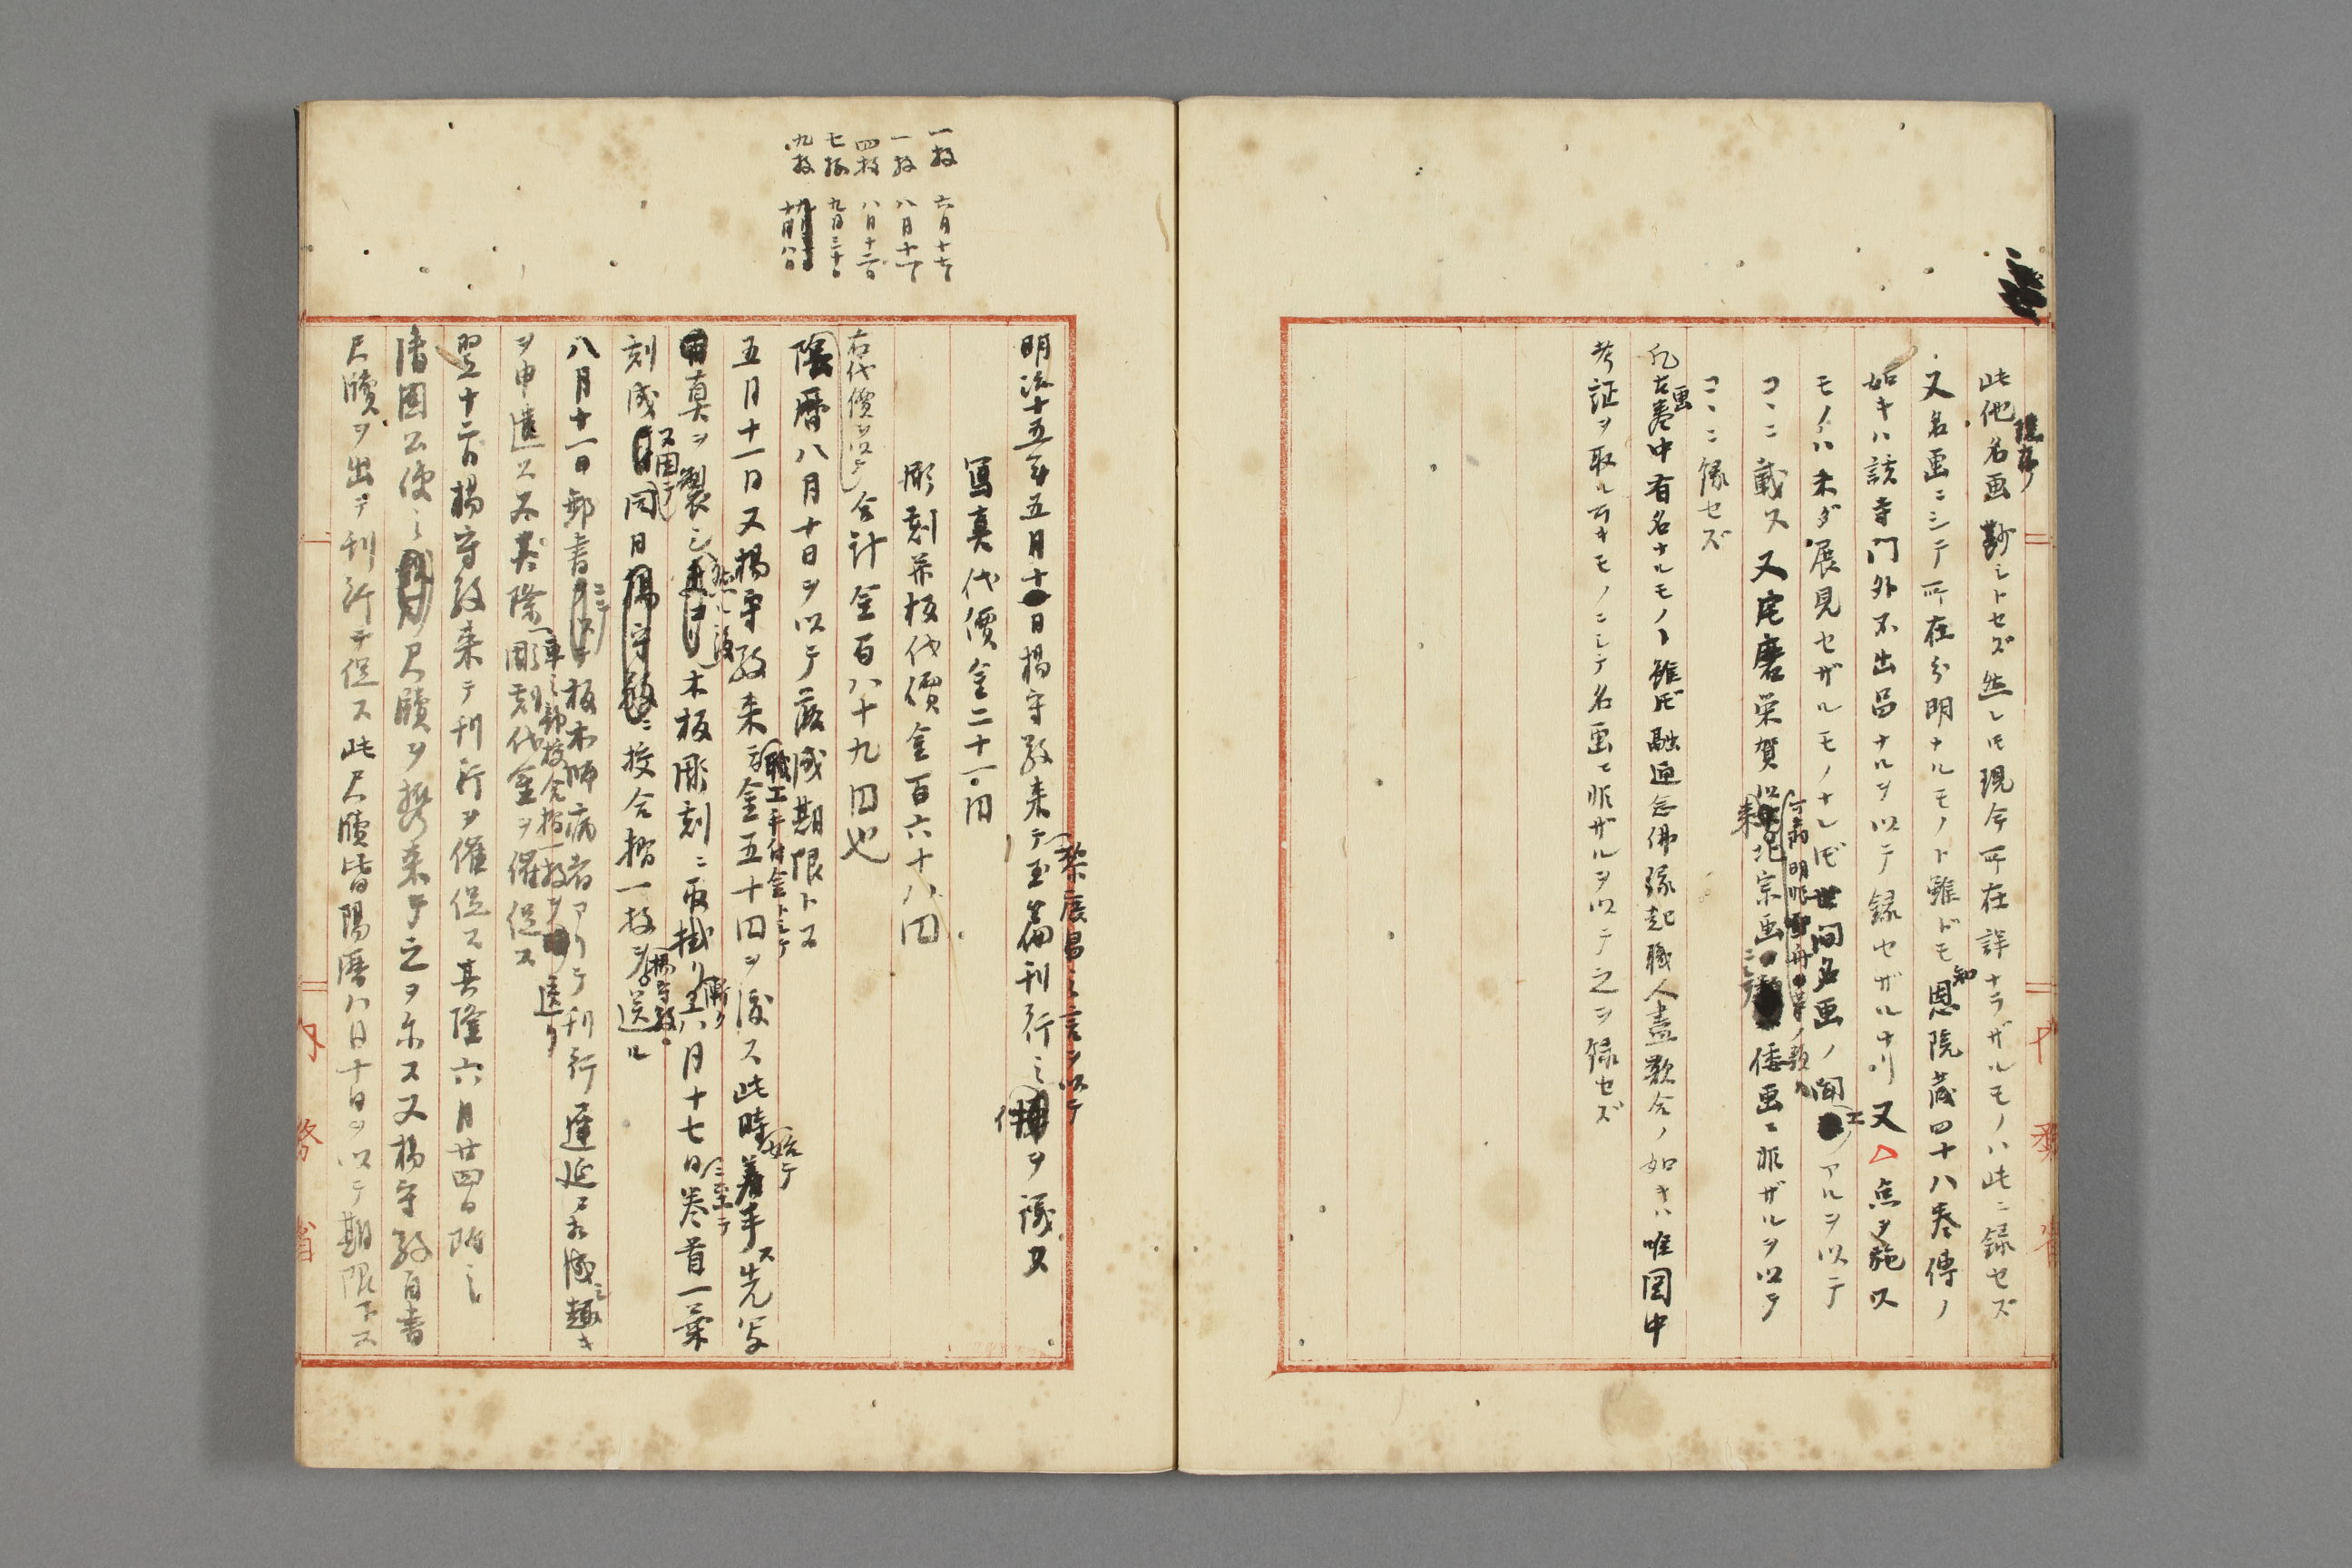 此他名画尠シトセズ然レ𪜈現今所在詳ナラザルモノハ此ニ録セズ
又名画ニシテ所在分明ナルモノト雖ドモ知恩院蔵四十八巻傳ノ
如キハ該寺門外不出品ナルヲ以テ録セザルナリ又△点ヲ施ス
モノハ未ダ展見セザルモノナレ𪜈世間名画ノ聞エアルヲ以テ
コヽニ載ス又宅磨栄賀
北宗画
倭画ニ非ザルヲ以テ
コヽニ録セズ
凡古画巻中有名ナルモノト雖𪜈融通念佛縁起職人盡歌合ノ如キハ唯図中
考証ヲ取ルベキモノニシテ名画ニ非ザルヲ以テ之ヲ録セズ
一枚 六月十七日
一枚 八月十一日
四枚 八月十二日
七枚 九月三十日
九枚 十月八日
明治十五年五月十日楊守敬来テ
黎庶昌之言ヲ以テ
玉篇刊行之
件ヲ議ス
寫真代價金二十一円
彫刻并板代價金百六十八円
右代價ヲ以テ合計金百八十九円也
陰暦八月十日ヲ以テ落成期限トス
五月十一日又楊守敬来
職工手付金トシテ
金五十円ヲ渡ス此時
始テ
着手ス先写
真ヲ製シ
然ル後
木板彫刻ニ取掛リ
漸ク
六月十七日
ニ至テ
巻首一葉
刻成
ス因テ
同日
校合摺一枚ヲ
楊守敬ニ
送ル
八月十一日郵書
ニテ
板木師病者アリテ刊行遅延
之趣キ
ヲ申遣ス又其際彫刻代金ヲ催促ス
翌十二日楊守敬来テ刊行ヲ催促ス其際六月廿四日附之
清国公使之尺牘ヲ携来テ之ヲ示ス又楊守敬自書
尺牘ヲ出テ刊行ヲ促ス此尺牘皆陽暦八月十日ヲ以テ期限トス
内務省